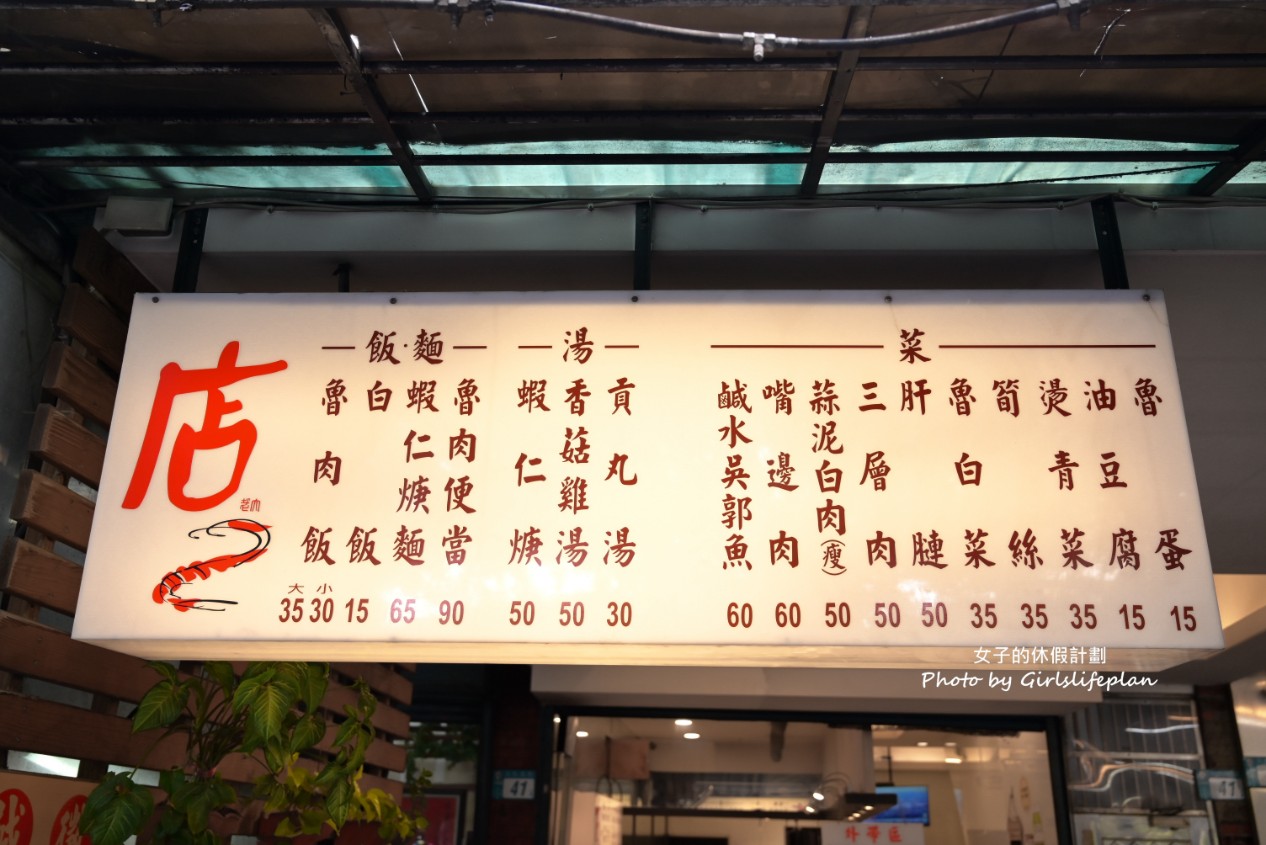 店
飯·麵
魯肉飯
大 小
35 30
白飯
15
蝦仁焿麵
65
魯肉便當
90
湯
蝦仁焿
50
香菇雞湯
50
貢丸湯
30
菜
鹹水吳郭魚
60
嘴邊肉
60
蒜泥白肉(瘦)
50
三層肉
50
肝腱
50
魯白菜
35
筍絲
35
燙青菜
35
油豆腐
15
魯蛋
15
女子的休假計劃
Photo by Girlslifeplan
41
41
外帶區